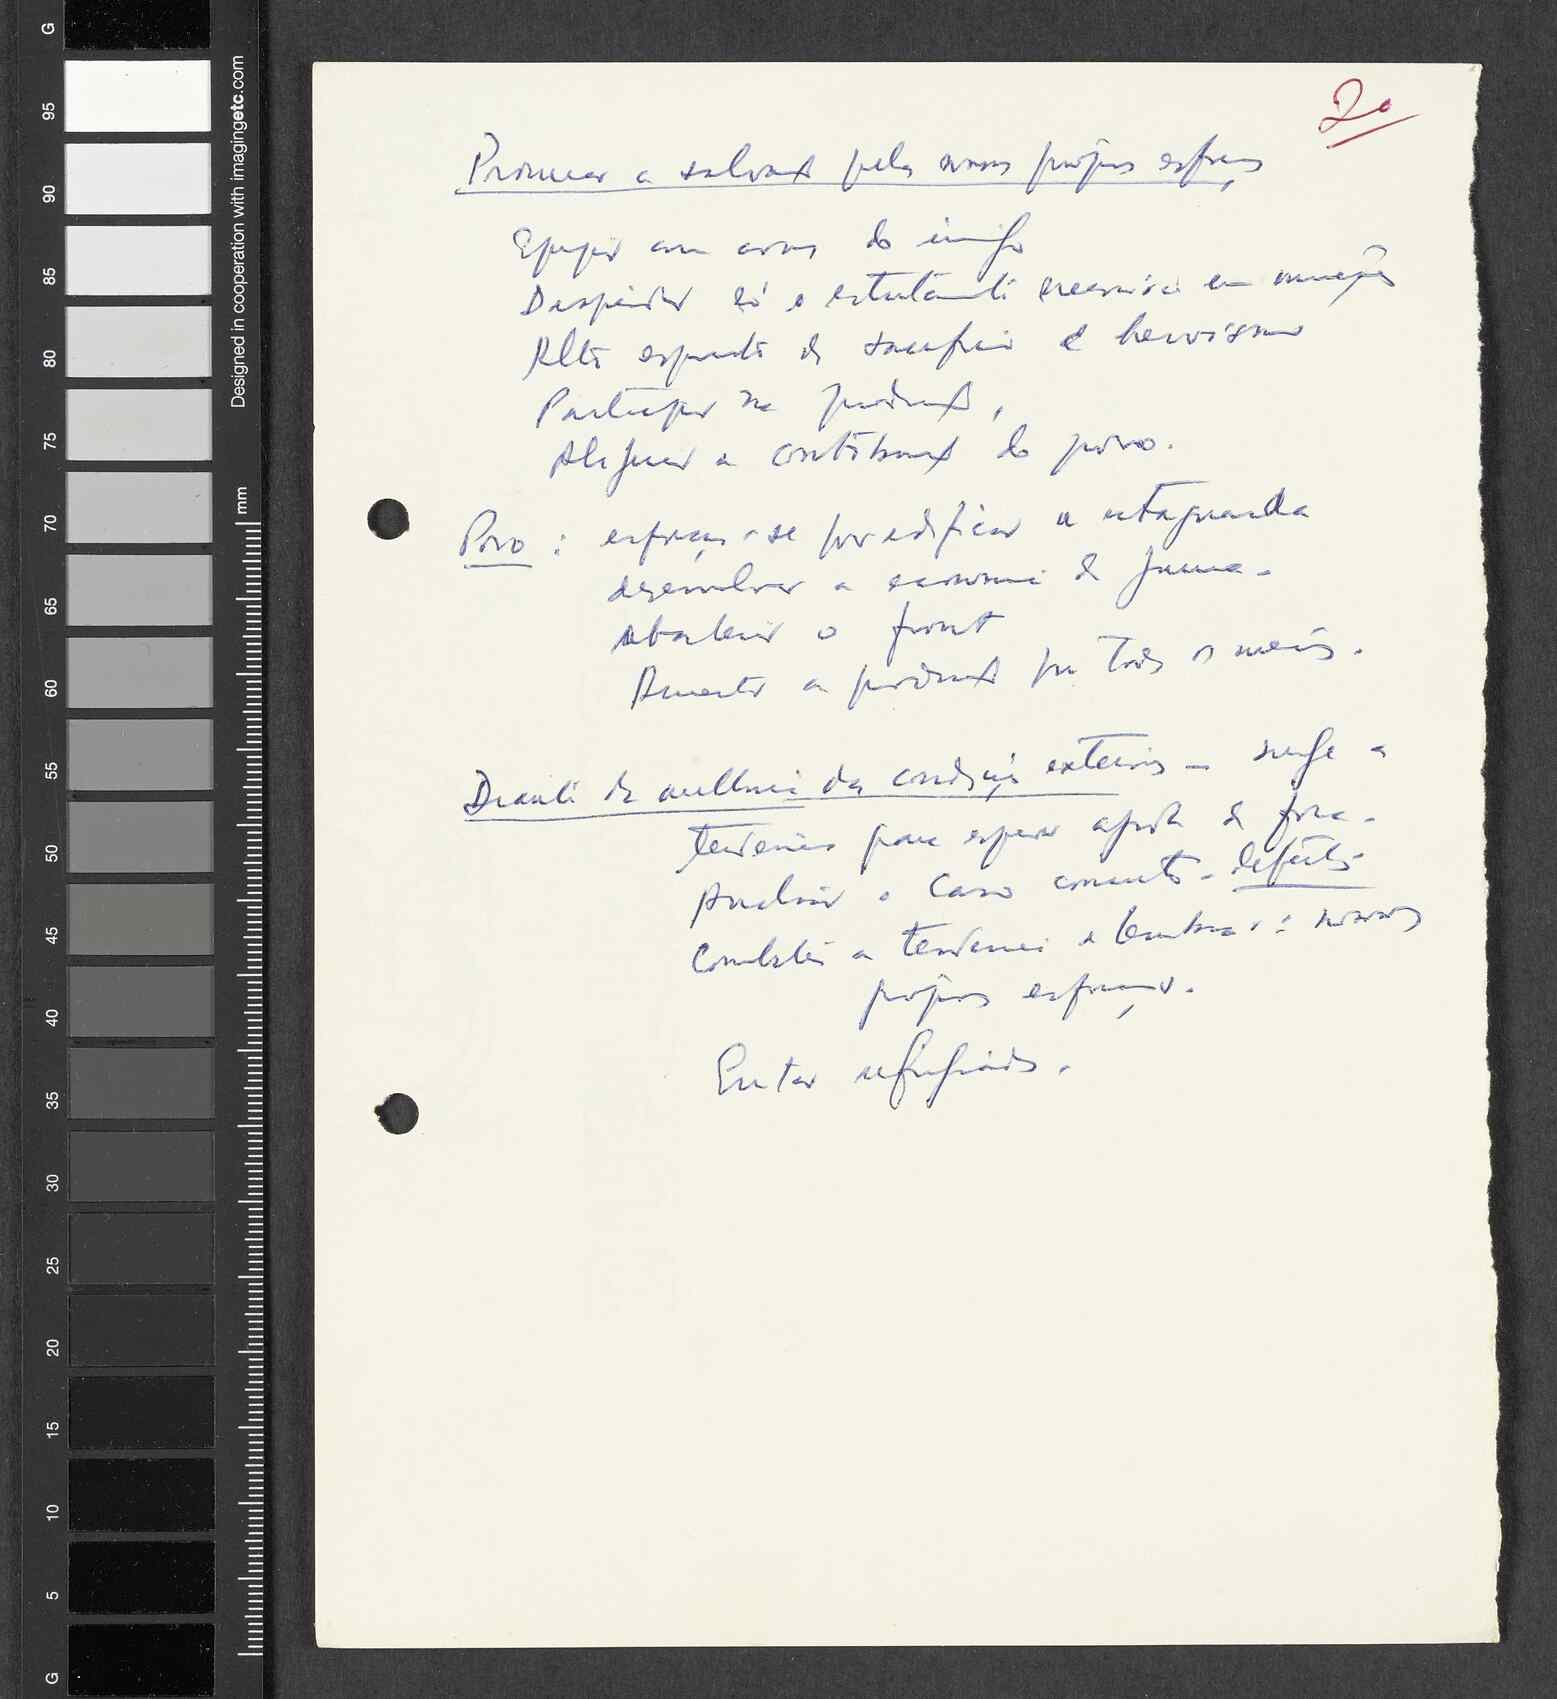 20
Procurar a salvação pelos nossos próprios esforços
Equipar com armas do inimigo
Despender só o estritamente necessário em munições
Alto espírito de sacrifício e heroísmo
Participar na produção,
Alargar a contribuição do povo.
Povo : esforçar-se por edificar a retaguarda
desenvolver a economia de guerra.
abastecer o front
Aumentar a produção por todos os meios.
Diante da melhoria das condições exteriores – surge a
tendência para esperar ajuda de fora.
Analisar o caso concreto. defeitos
Combater a tendência e lembrar : nossos
próprios esforços.
Evitar refugiados.
G
95
90
85
80
75
70
65
60
55
50
45
40
35
30
25
20
15
10
5
G
Designed in cooperation with imagingetc.com
mm